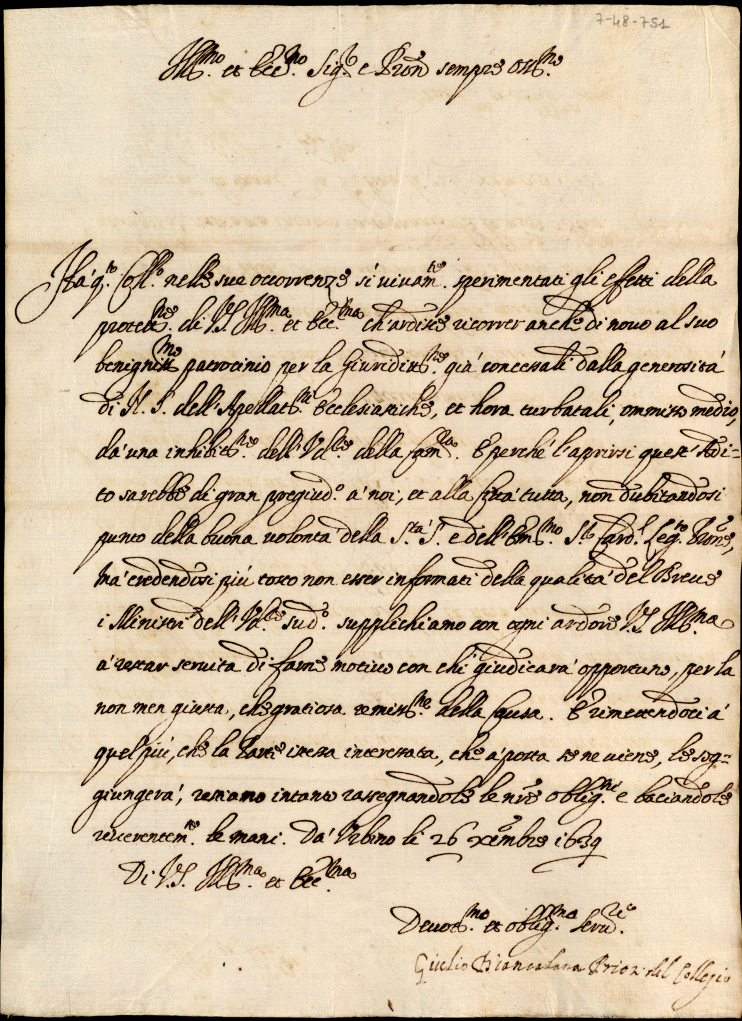 7-48-751
Ill.mo et Ecc.mo Sig.r e Pron sempre Oss.mo
Ha q.to Coll.o nelle sue occorrenze sì vivam.te sperimentati gli effetti della
protett.ne di V.S. Ill.ma et Ecc.ma ch'ardisce ricorrer anche di novo al suo
benigniss.mo patrocinio per la Giuriditt.ne già concessali dalla generosità
di N. S. dell'Apellat.ni Ecclesiastiche, et hora turbatali, ommisso medio,
da una inhibit.ne dell'Ud.re della Cam.ra. E perché l'aprirsi quest'Adi=
to sarebbe di gran pregiud.o a noi, et alla Città tutta, non dubitandosi
punto della buona volontà della S.tà S. e dell'Em.mo S.r Card.l Leg.to Prone,
ma credendosi più tosto non esser informati della qualità del Breve
i Ministri dell'Ud.re sud.o supplichiamo con ogni ardore V.S. Ill.ma
à restar servita di farne motivo con chi giudicarà opportuno, per la
non men giusta, che gratiosa remiss.ne della Causa. E rimettendoci à
quel più, che la Parte istessa interessata, che a posta se ne viene, le sog=
giungerà, restiamo intanto rassegnandole le nre oblig.ni e baciandole
reverentem.te le mani. Da Urbino li 26 Xembre 1639
Di V.S. Ill.ma et Ecc.ma
Devot.mo et oblig.ma Serv.re
Giulio Prior del Collegio